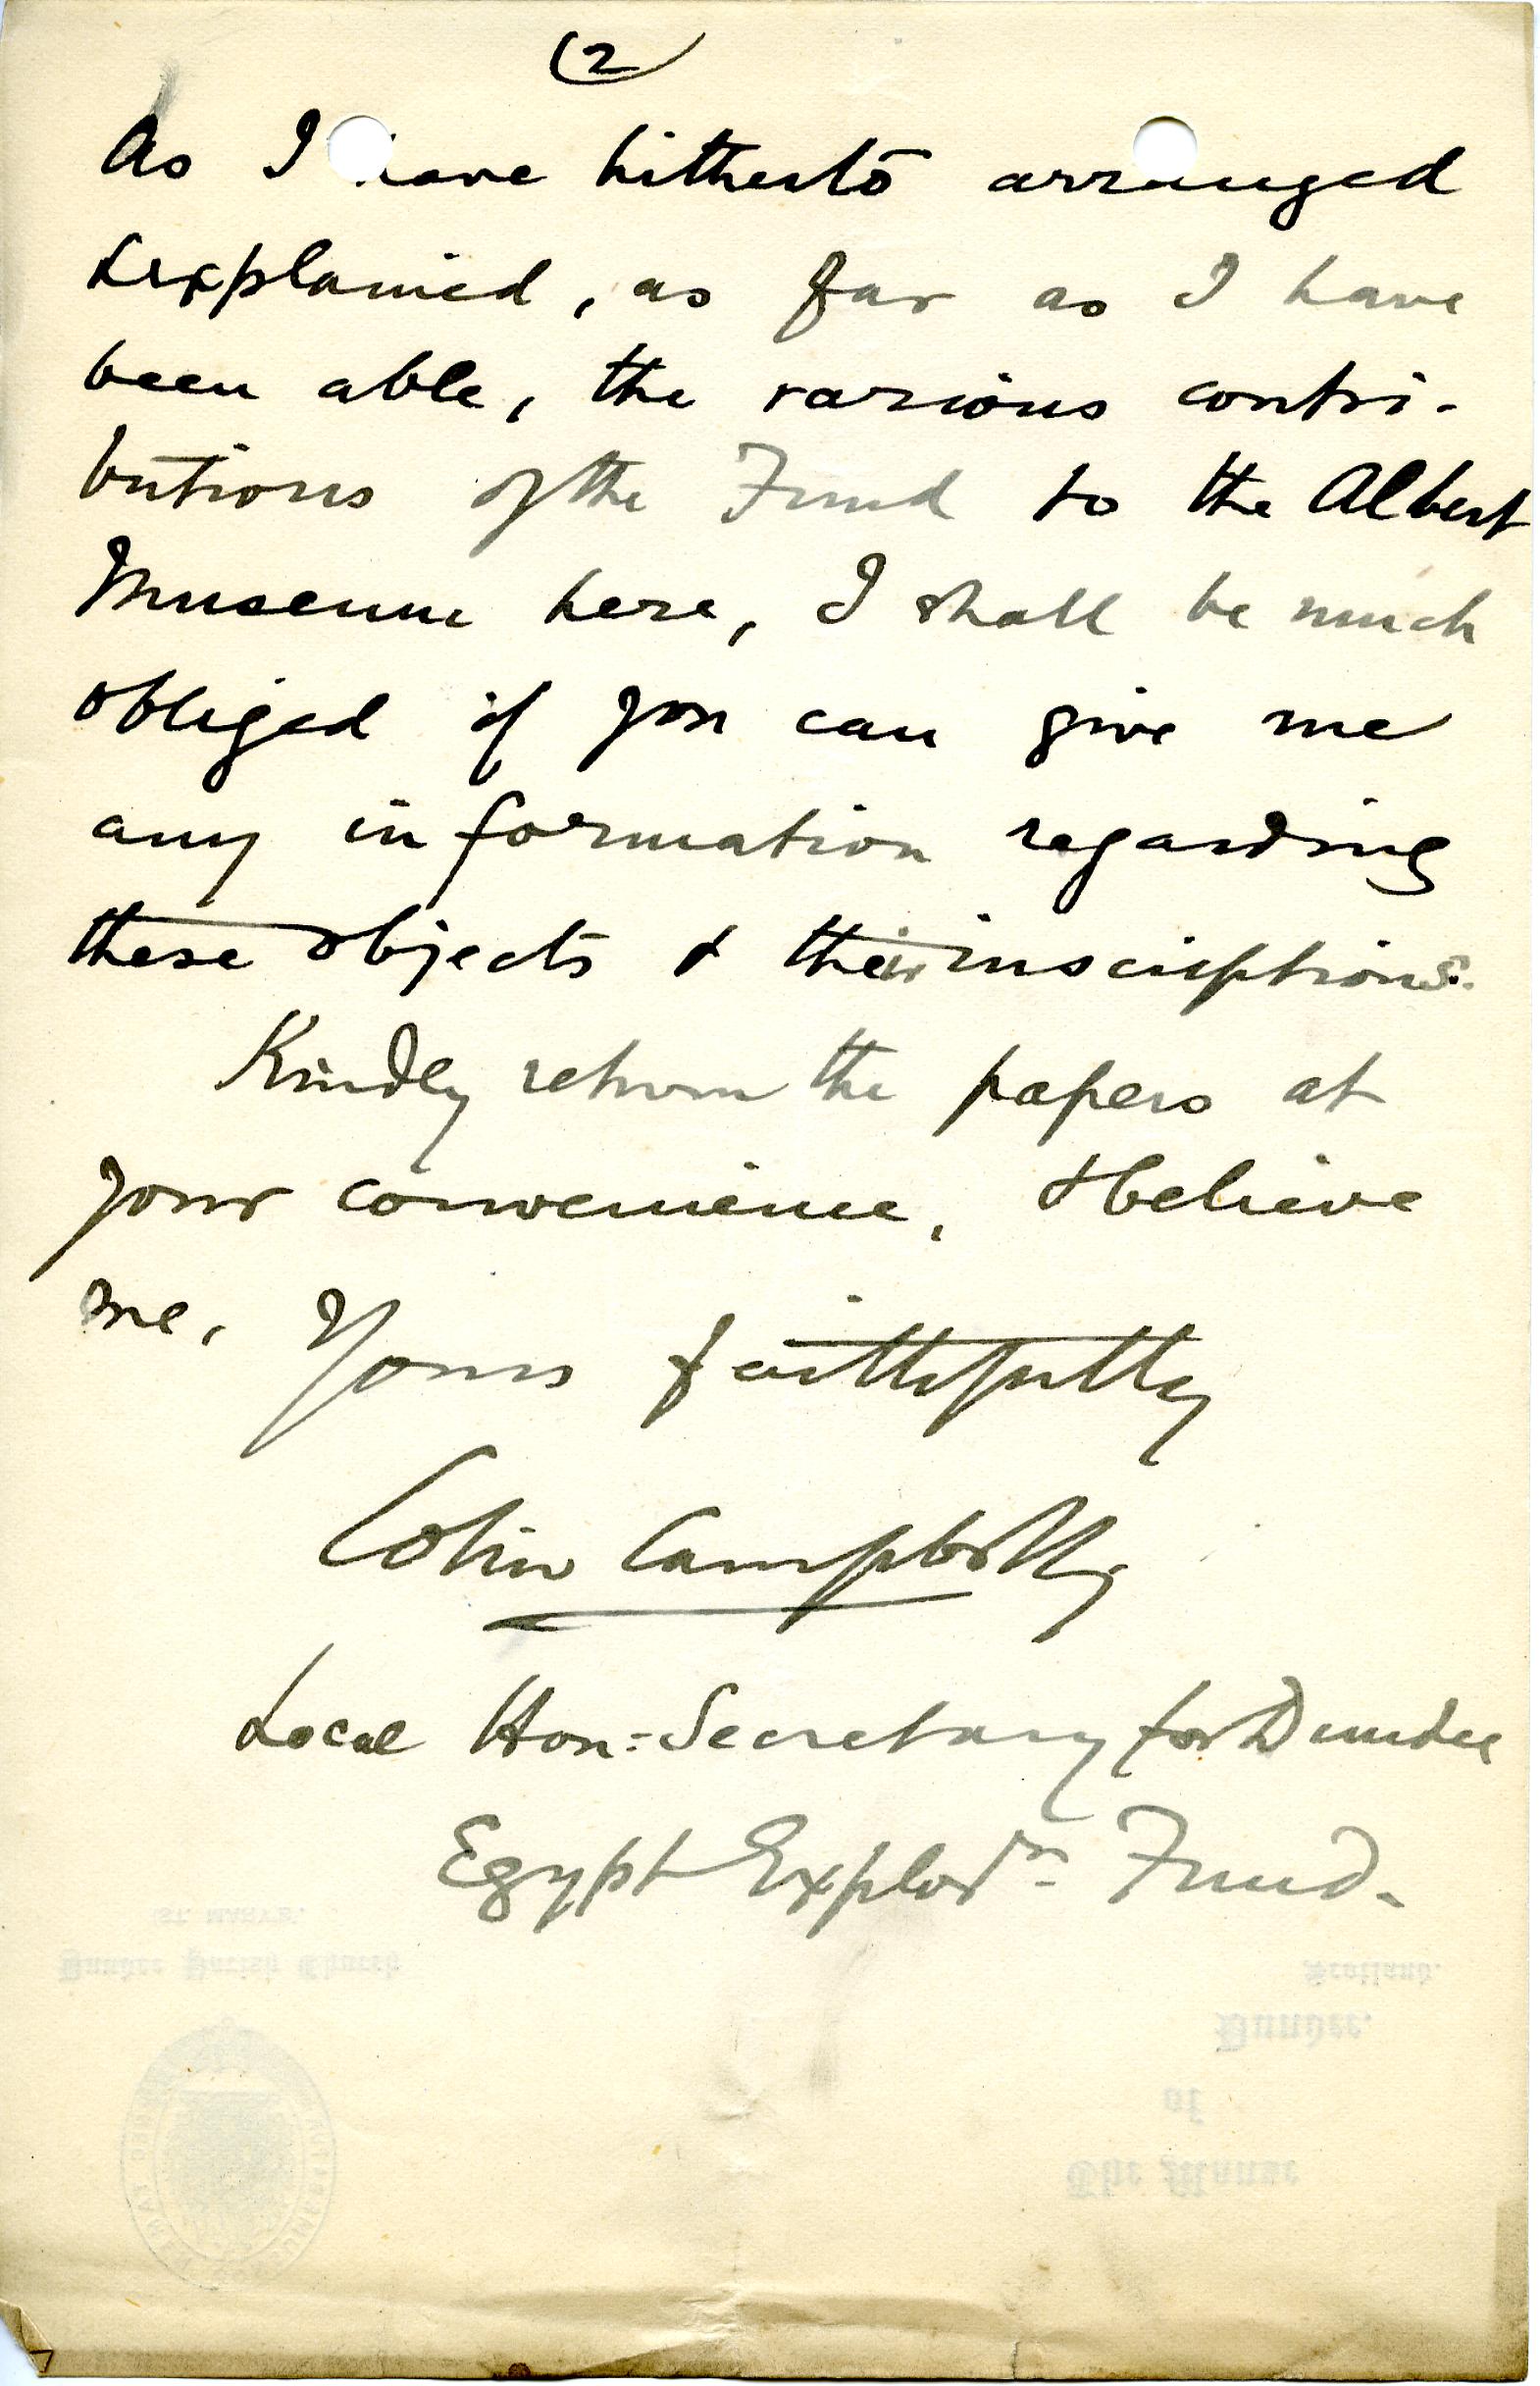 (2)
As I have hitherto arranged
& explained, as far as I have
been able, the various contri-
butions of the Fund to the Albert
Museum here, I shall be much
obliged if you can give me
any information regarding
these objects & their inscriptions.
Kindly return the papers at
your convenience, & believe
me,
Yours faithfully
Colin Campbell
Local Hon: Secretary for Dundee
Egypt Explorn Fund.
ST. MARY'S.
Dundee Parish Church
Scotland.
Dundee.
of
The Manse